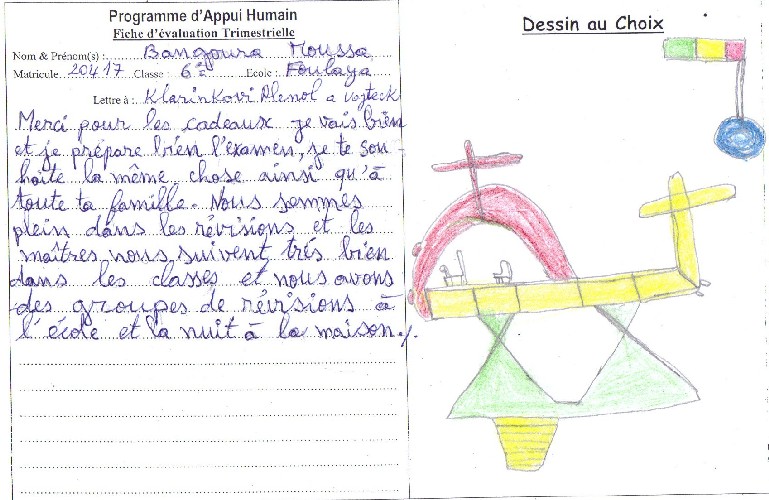 Programme d'Appui Humain
Fiche d'évaluation Trimestrielle
Dessin au Choix
Nom & Prénom(s) : Bangoura Moussa
Matricule 20417 Classe : 6è Ecole : Foulaya
Lettre à : Klarinkovi Alenol a Vojteck
Merci pour les cadeaux je vais bien
et je prépare bien l'examen, je te sou-
haite la même chose ainsi qu'à
toute ta famille. Nous sommes
plein dans les révisions et les
maîtres nous suivent trés bien
dans les classes et nous avons
des groupes de révisions à
l'école et la nuit à la maison./.